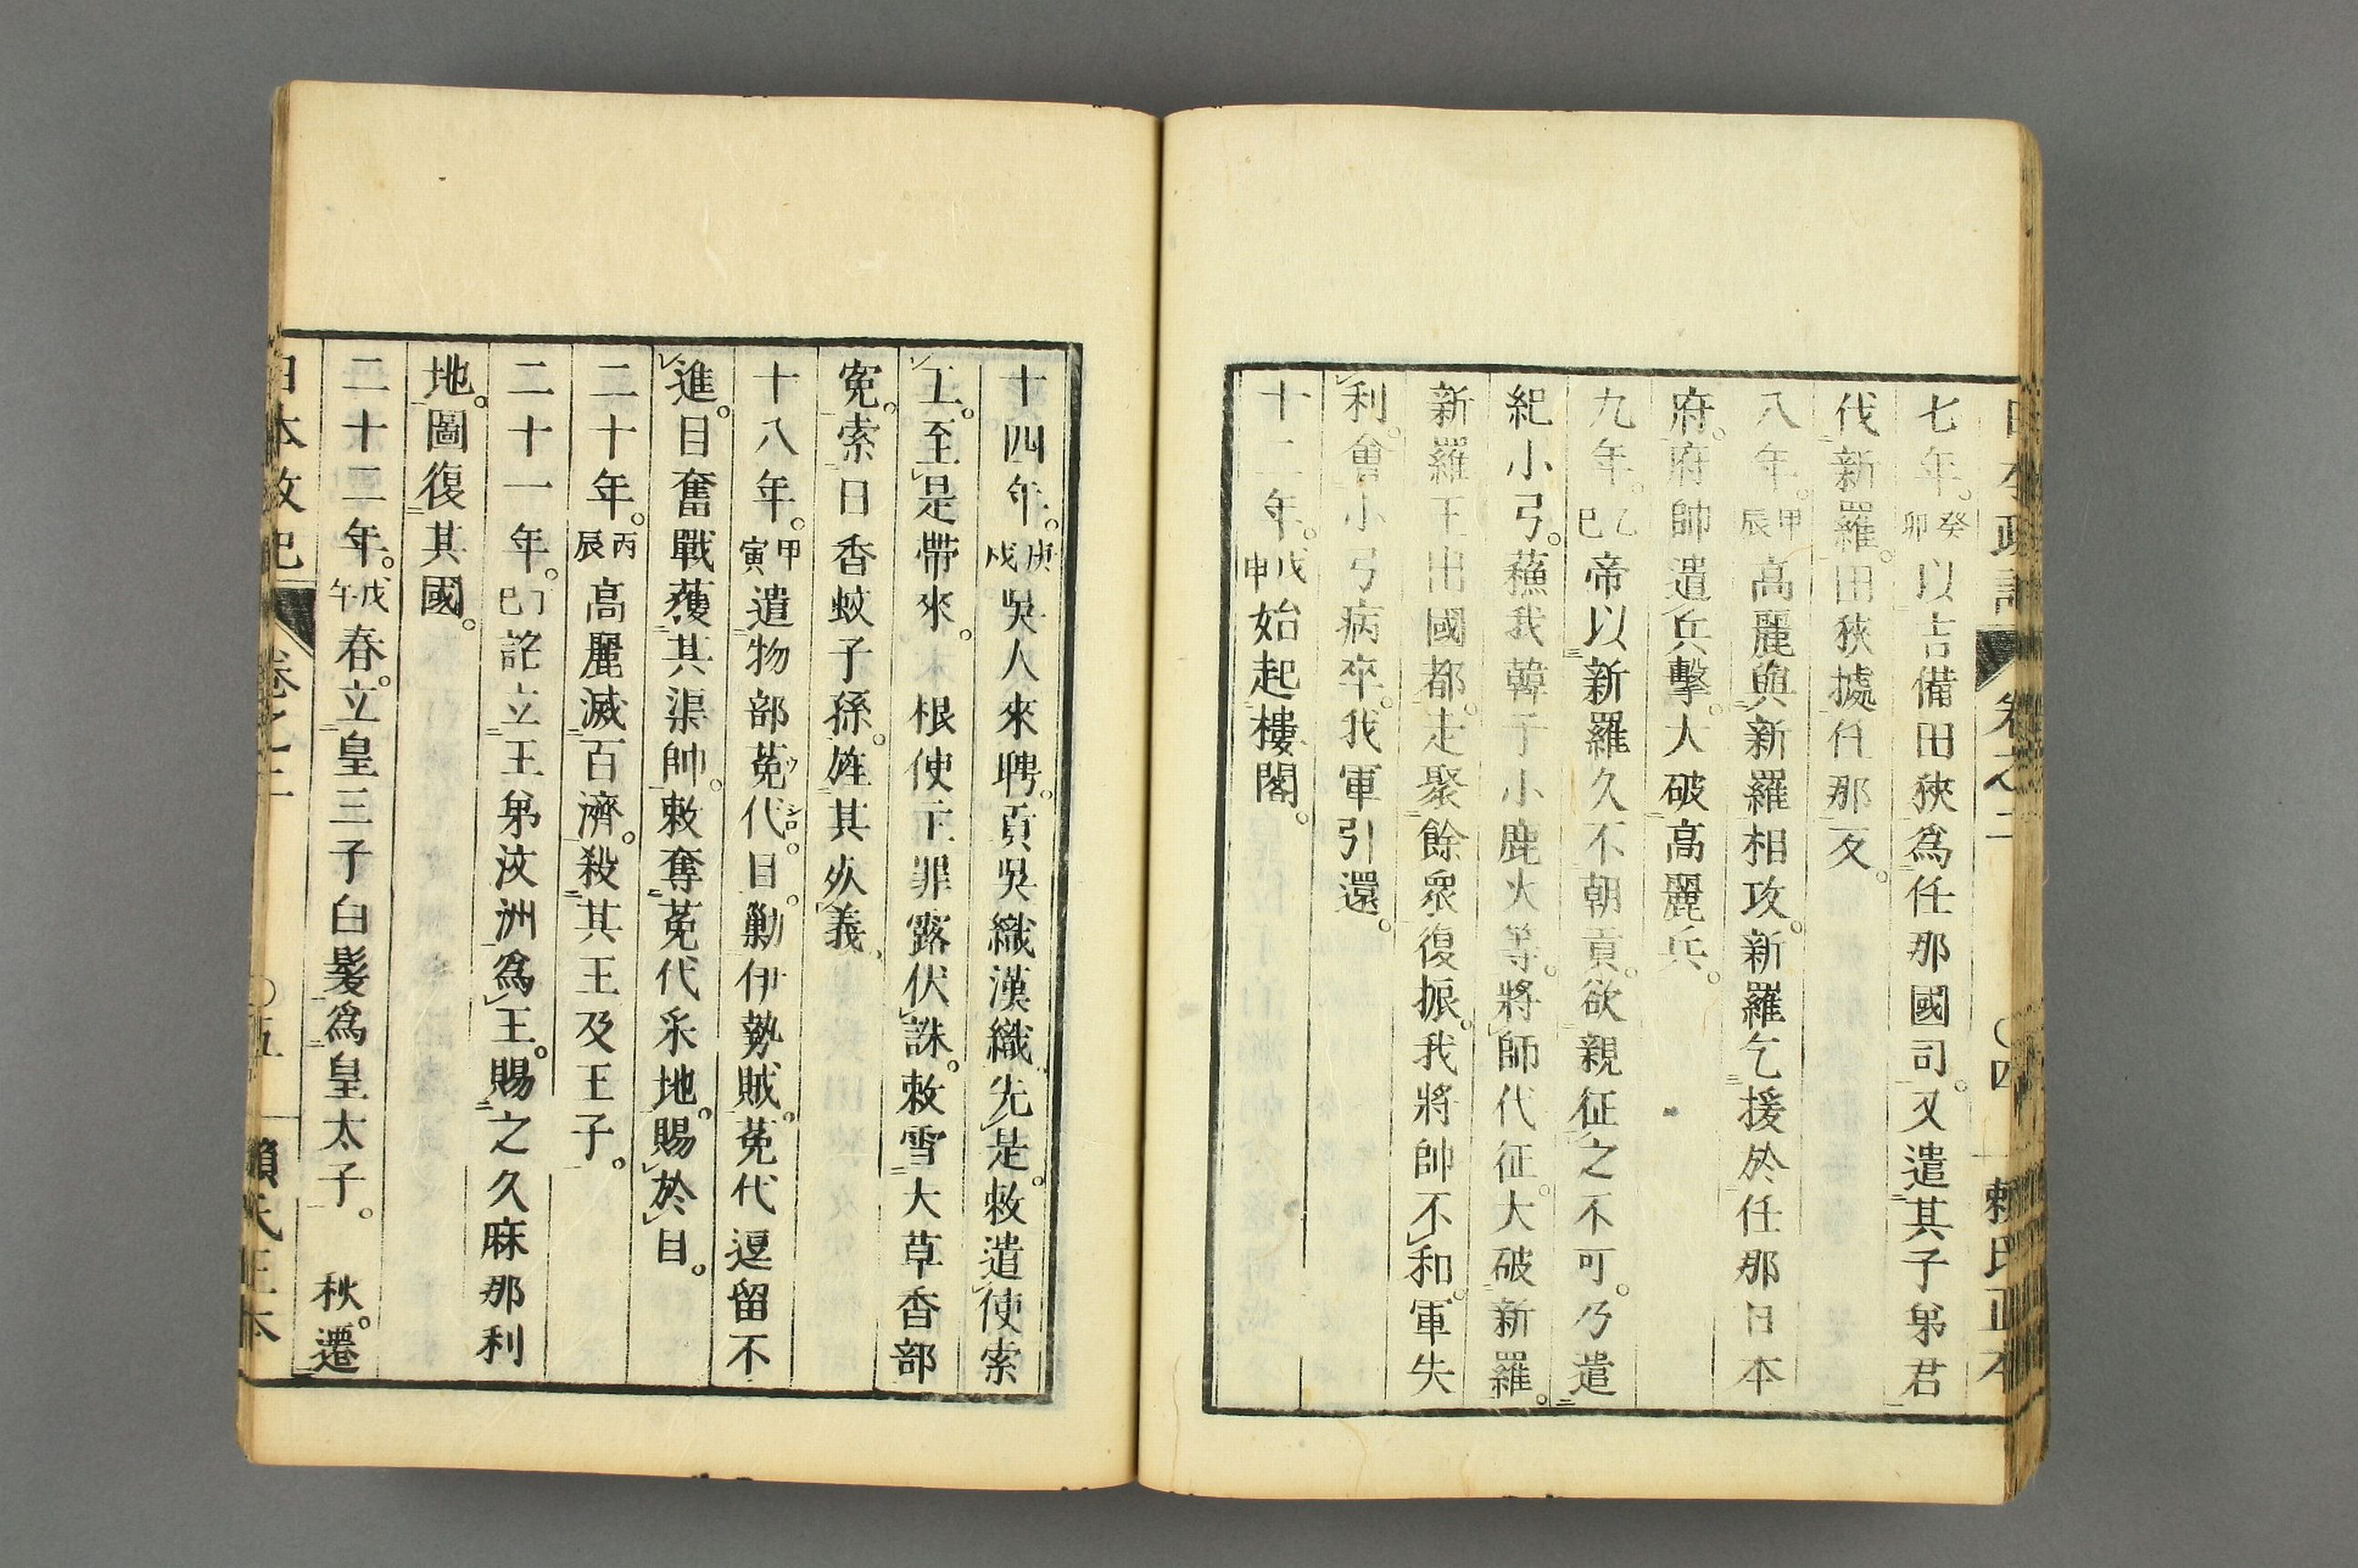 日本政記 卷之二 〇四 賴氏正本
七年。癸卯以吉備田狹爲任那國司。又遣其子弟君
伐新羅。田狹據任那反。
八年。甲辰高麗與新羅相攻。新羅乞援於任那日本
府。府帥遣兵擊。大破高麗兵。
九年。乙巳帝以新羅久不朝貢。欲親征之不可。乃遣
紀小弓。蘓我韓子小鹿火等。將師代征。大破新羅。
新羅王出國都。走聚餘衆復振。我將帥不和。軍失
利。會小弓病卒。我軍引還。
十二年。戊申始起樓閣。
十四年。庚戌吳人來聘。貢吳織漢織。先是。敕遣使索
工。至是帶來。根使主罪露伏誅。敕雪大草香部
寃。索日香蚊子孫。旌其死義
十八年。甲寅遣物部菟代。目。勦伊勢賊。菟代逗留不
進。目奮戰獲其渠帥。敕奪菟代釆地。賜於目。
二十年。丙辰高麗滅百濟。殺其王及王子。
二十一年。丁巳詔立王弟汶洲爲王。賜之久麻那利
地。圖復其國。
二十二年。戊午春。立皇三子白髮爲皇太子。 秋。遷
日本政記 卷之二 〇五 賴氏正本